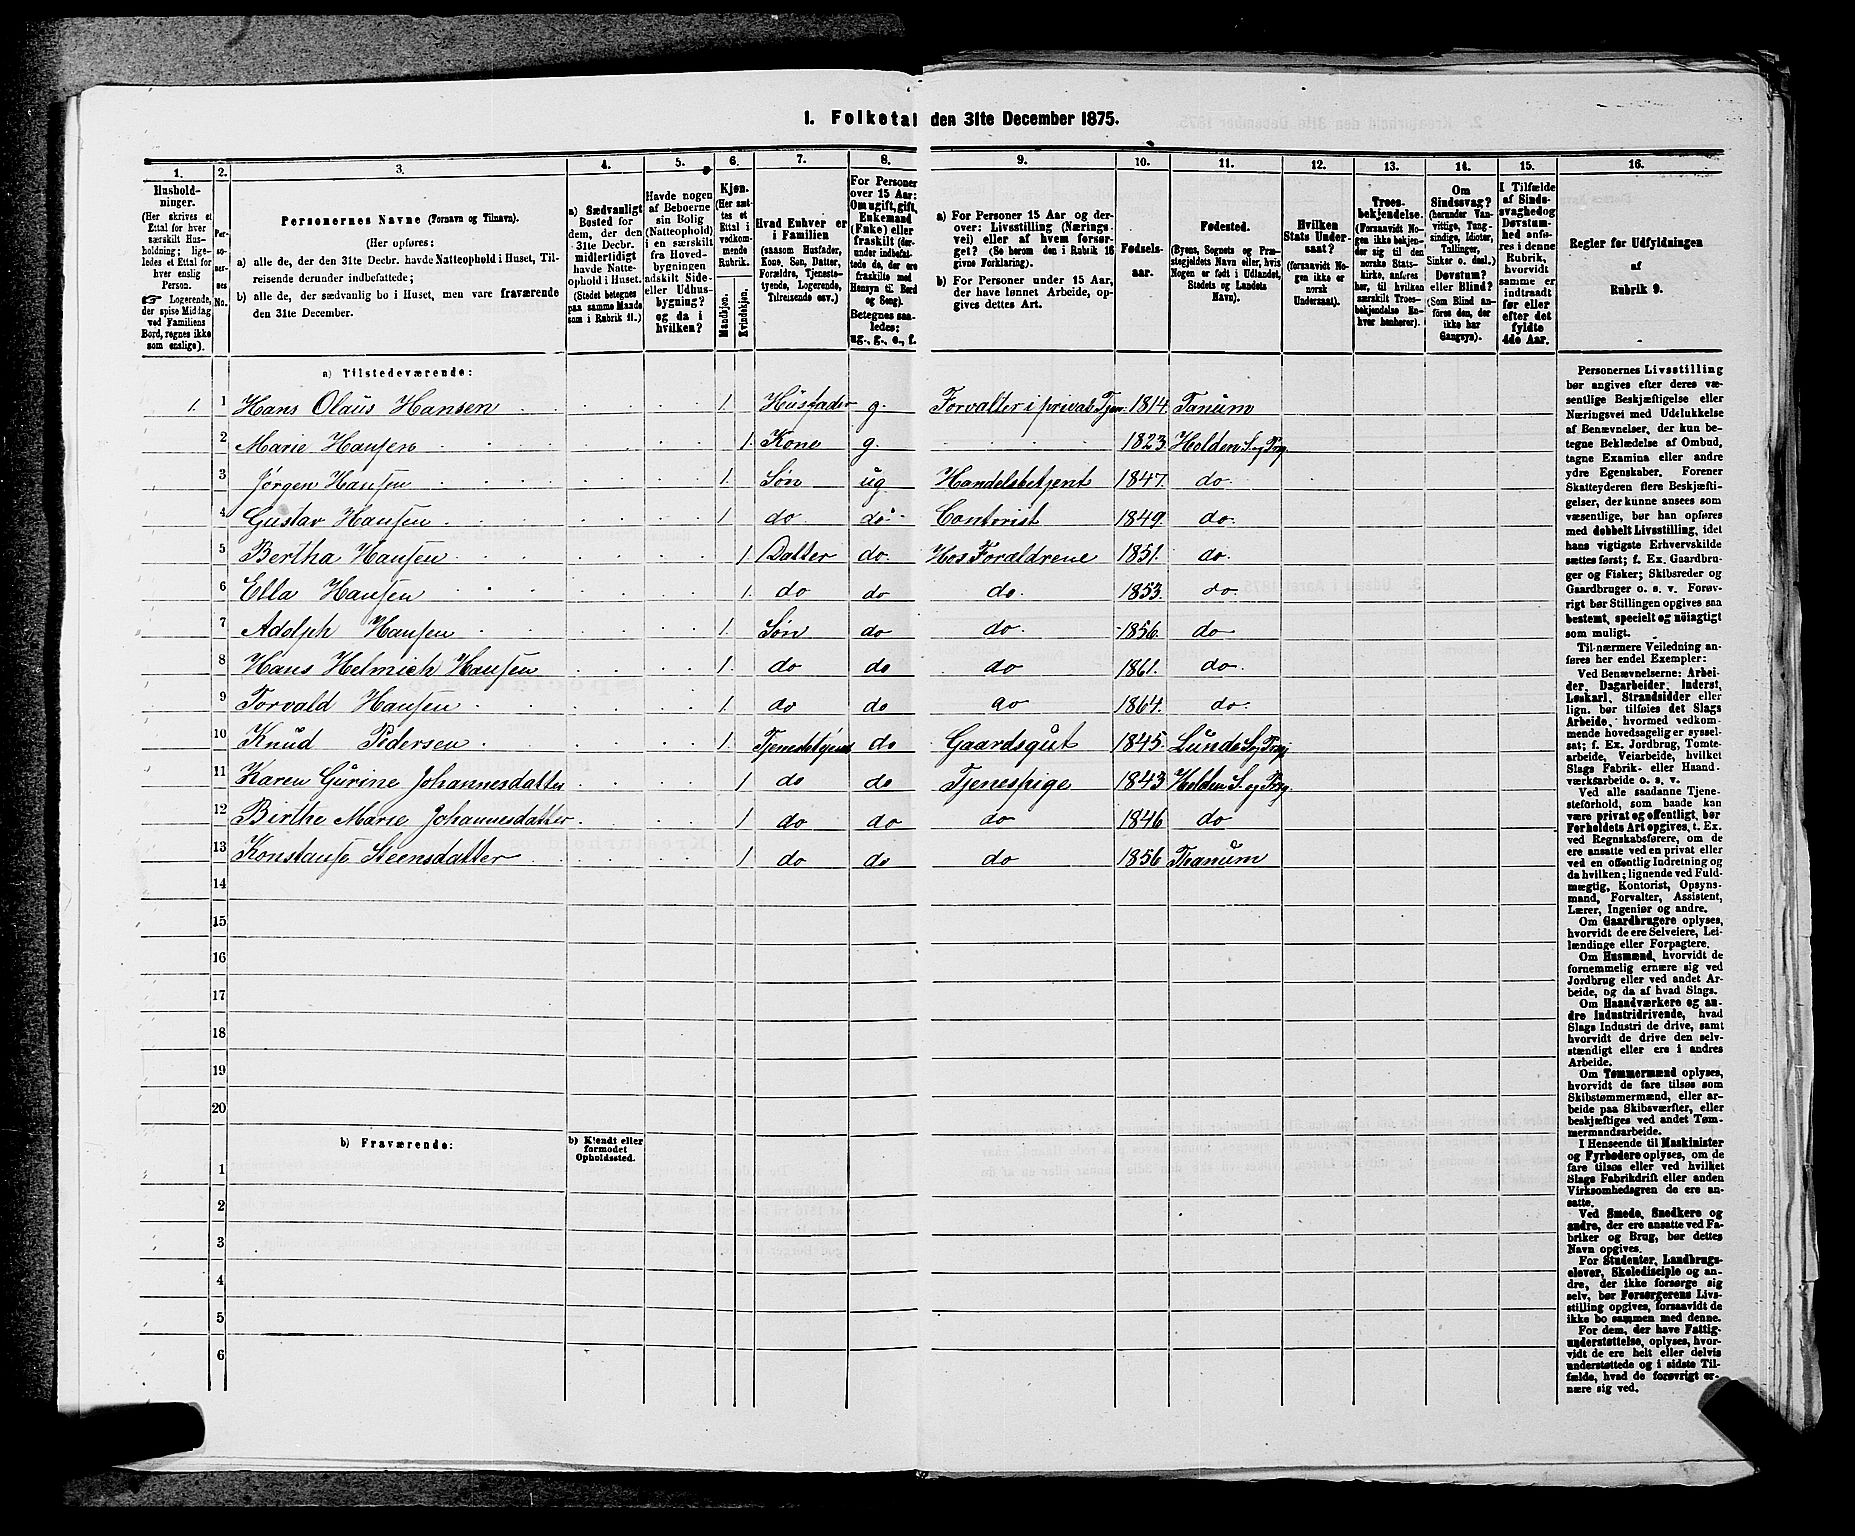 1. Folketal den 31te December 1875.
1. 2. 3. 4. 5. 6. 7. 8. 9. 10. 11. 12. 13. 14. 15. 16.
Hushold-
ninger.
(Her skrives et
Ettal for hver
særskilt Hus-
holdning; lige-
ledes et Ettal for
hver enslig
Person.
☞ Logerende,
der spise Middag
ved Familiens
Bord, regnes ikke
som enslige).
Per-
so-
ner-
nes
No.
Personernes Navne (Fornavn og Tilnavn).
(Her opføres:
a) alle de, der den 31te Decbr. havde Natteophold i Huset, Til-
reisende derunder indbefattede;
b) alle de, der sædvanlig bo i Huset, men vare fraværende
den 31te December.
a) Sædvanligt
Bosted for
dem, der den
31te Decbr.
midlertidigt
havde Natte-
ophold i Huset.
(Stedet betegnes
paa samme Maade
som i Rubrik 11.)
Havde nogen
af Beboerne
sin Bolig
(Natteophold)
i en særskilt
fra Hoved-
bygningen
adskilt Side-
eller Udhus-
bygning?
og da i
hvilken?
Kjøn.
(Her sæt-
tes et
Ettal i
vedkom-
mende
Rubrik.
Mandkjøn.
Kvindekjøn.
Hvad Enhver er
i Familien
(saasom Husfader,
Kone, Søn, Datter,
Forældre, Tjeneste-
tyende, Logerende,
Tilreisende osv.)
For Personer
over 15 Aar:
Om ugift, gift,
Enkemand
(Enke) eller
fraskilt (der-
under indbefat-
tede de, der ere
fraskilte med
Hensyn til Bord
og Seng).
Betegnes saa-
ledes:
ug., g., e., f.
a) For Personer 15 Aar og der-
over: Livsstilling (Nærings-
vei) eller af hvem forsør-
get? (Se herom den i Rubrik 16
givne Forklaring).
b) For Personer under 15 Aar,
der have lønnet Arbeide, op-
gives dettes Art.
Fødsels-
aar.
Fødested.
(Byens, Sognets og Præ-
stegjeldets Navn eller, hvis
Nogen er født i Udlandet,
Stedets og Landets
Navn).
Hvilken
Stats Under-
saat?
(forsaavidt No-
gen ikke er
norsk
Undersaat).
Troes-
bekjendelse.
(Forsaavidt No-
gen ikke bekjen-
der sig til den
norske Stats-
kirke, anføres
her, til hvilken
særskilt Troes-
bekjendelse En-
hver henhører).
Om
Sindssvag?
(herunder Van-
vittige, Tung-
sindige, Idioter,
Tullinger,
Sinker o. desl.)
Døvstum?
eller Blind?
(Som Blind an-
føres den, der
ikke har
Gangsyn).
I Tilfælde
af Sinds-
svaghed og
Døvstum-
hed anfø-
res i denne
Rubrik,
hvorvidt
samme er
indtraadt
før eller
efter det
fyldte
4de Aar.
Regler for Udfyldningen
af
Rubrik 9.
a) Tilstedeværende:
1. 1 Hans Olaus Hansen 1. Husfader g. Forvalter i privat Tjen. 1814. Tanum
2 Marie Hansen 1. Kone g. 1823 Holden S. og Prg.
3 Jørgen Hansen 1. Søn ug Handelsbetjent 1847. do.
4 Gustav Hansen 1 do do Contorist 1849. do.
5 Bertha Hansen 1 Datter do. Hos Forældrene 1851. do
6 Ella Hansen 1. do do do. 1853. do
7 Adolph Hansen 1. Søn do do. 1856. do
8 Hans Helmich Hansen 1. do do do 1861. do.
9 Torvald Hansen 1. do do do 1864. do.
10 Knud Pedersen 1. Tjenestetyende do Gaardsgut 1845. Lunde S. og Prgj
11 Karen Gurine Johannesdatter 1 do do Tjenespige 1843 Holden S. og Prg.
12 Birthe Marie Johannesdatter 1 do do do 1846 do
13 Konstanse Steensdatter 1 do do do 1856 Tanum
14
15
16
17
18
19
20
b) Fraværende:
b) Kjendt eller
formodet
Opholdssted.
1
2
3
4
5
6
Personernes Livsstilling
bør angives efter deres væ-
sentlige Beskjæftigelse eller
Næringsvei med Udelukkelse
af Benævnelser, der kun be-
tegne Beklædelse af Ombud,
tagne Examina eller andre
ydre Egenskaber. Forener
Skatteyderen flere Beskjæfti-
gelser, der kunne ansees som
væsentlige, bør han opføres
med dobbelt Livsstilling, idet
hans vigtigste Erhvervskilde
sættes først; f. Ex. Gaardbru-
ger og Fisker; Skibsreder og
Gaardbruger o. s. v. Forøv-
rigt bør Stillingen opgives saa
bestemt, specielt og nöiagtigt
som muligt.
Til nærmere Veiledning an-
føres her endel Exempler:
Ved Benævnelserne: Arbei-
der, Dagarbeider, Inderst,
Løskarl, Strandsidder eller
lign. bør tilføies det Slags
Arbeide, hvormed vedkom-
mende hovedsagelig er syssel-
sat; f. Ex. Jordbrug, Tomte-
arbeide, Veiarbeide, hvilket
Slags Fabrik- eller Haand-
værksarbeide o. s. v.
Ved alle saadanne Tjene-
steforhold, som baade kan
være privat og offentligt, bør
Forholdets Art opgives, t. Ex.
ved Regnskabsførere, om de
ere ansatte ved en privat eller
ved en offentlig Indretning og
da hvilken; lignende ved Fuld-
mægtig, Kontorist, Opsyns-
mand, Forvalter, Assistent,
Lærer, Ingeniør og andre.
Om Gaardbrugere oplyses,
hvorvidt de ere Selveiere, Lei-
lændinge eller Forpagtere.
Om Husmænd, hvorvidt de
fornemmelig ernære sig ved
Jordbrug eller ved andet Ar-
beide, og da af hvad Slags.
Om Haandværkere og an-
dre Industridrivende, hvad
Slags Industri de drive, samt
hvorvidt de drive den selv-
stændigt eller ere i andres
Arbeide.
Om Tømmermænd oplyses,
hvorvidt de fare tilsøs som
Skibstømmermænd, eller ar-
beide paa Skibsværfter, eller
beskjæftiges ved andet Tøm-
mermandsarbeide.
I Henseende til Maskinister
og Fyrbødere oplyses, om de
fare tilsøs eller ved hvilket
Slags Fabrikdrift eller anden
Virksomhedsgren de ere an-
satte.
Ved Smede, Snedkere og
andre, der ere ansatte ved Fa-
briker og Brug, bør dettes
Navn opgives.
For Studenter, Landbrugs-
elever, Skoledisciple og an-
dre, der ikke forsørge sig
selv, bør Forsørgerens Livs-
stilling opgives, forsaavidt de
ikke bo sammen med denne.
For dem, der have Fattig-
understøttelse, oplyses, hvor-
vidt de ere helt eller delvis
understøttede og i sidste Til-
fælde, hvad de forøvrigt er-
nære sig ved.